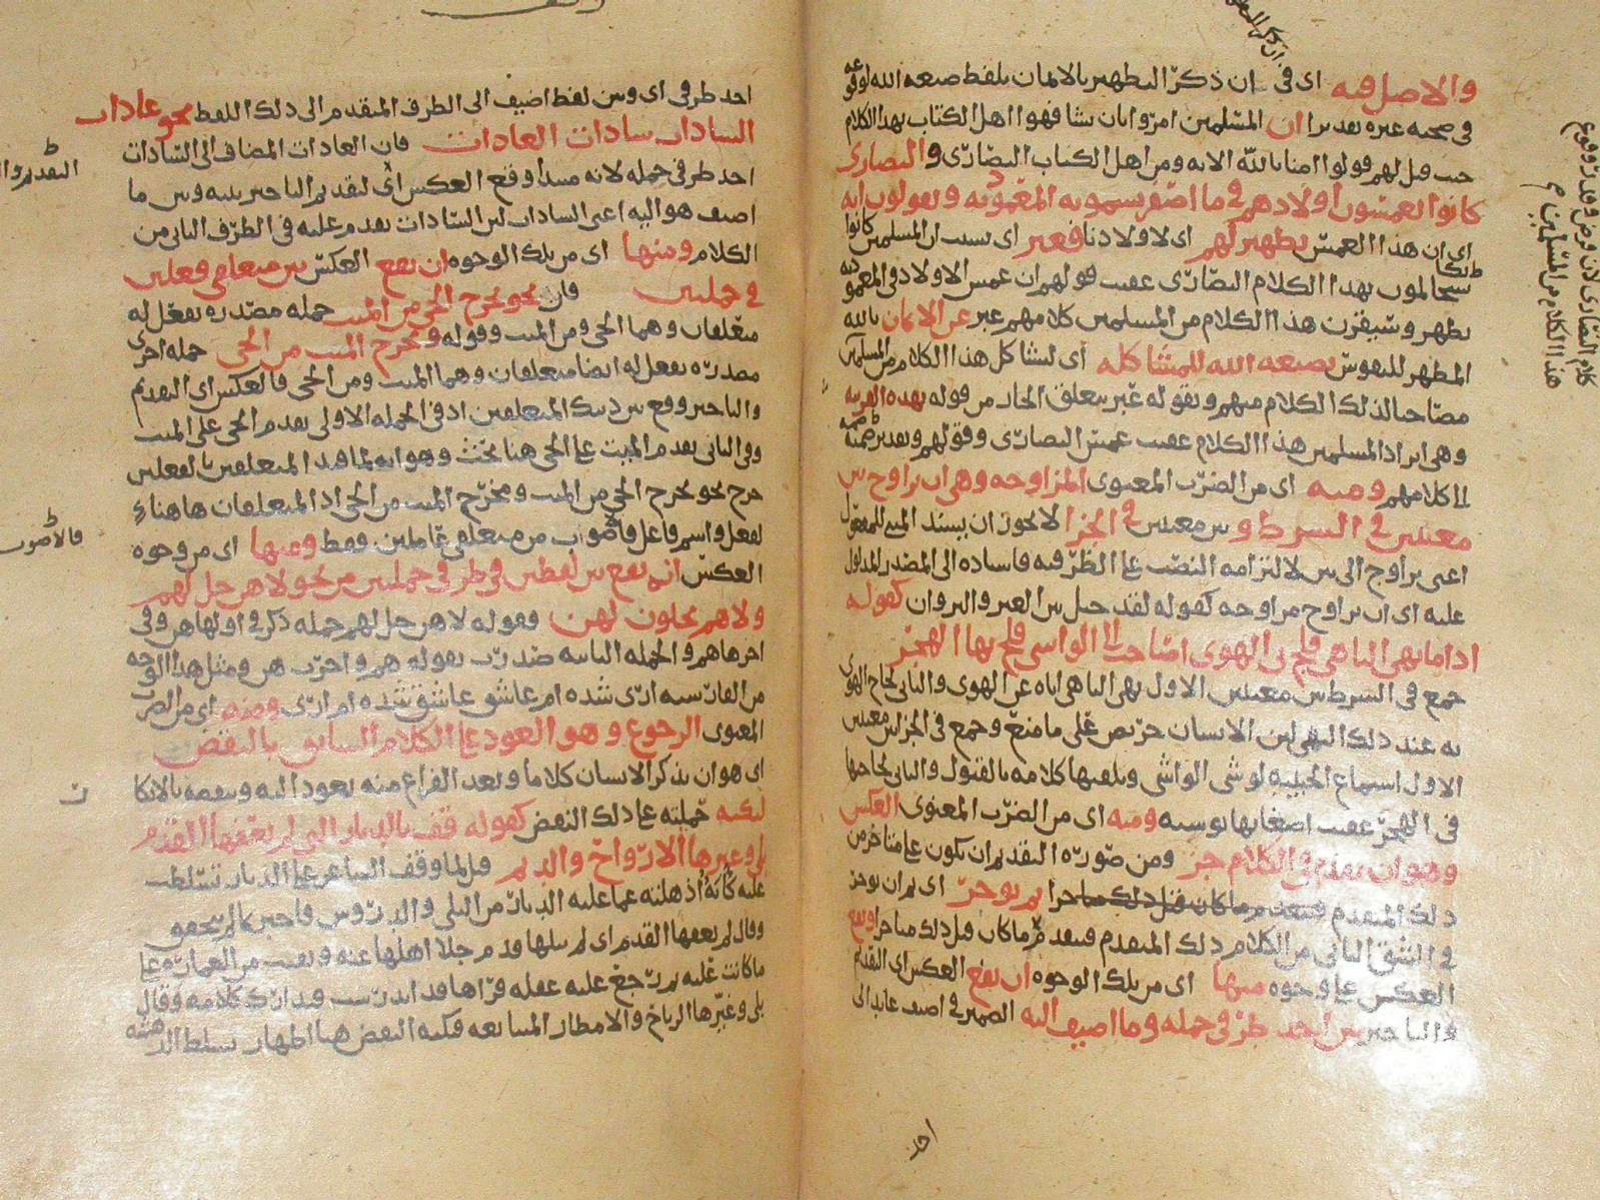 والاصل فيه اى فى ان ذكر التطهير بالايمان بلفظ صبغه الله لوقوعه
فى صحبه غيره تقديرا ان المسلمين امروا بان يشافهوا اهل الكتاب بهذا الكلام
حيث قيل لهم قولوا امنا بالله الايه ومن اهل الكتاب النصارى والنصارى
كانوا يغمسون اولادهم فى ما اصفر يسمونه المعموديه ويقولون انه
اى ان هذا الغمس تطهير لهم اى لاولادنا فعبر اى بسبب ان المسلمين كانوا
بهذا الكلام النصارى عقيب قولهم ان غمس الاولاد فى المعموديه
تطهير وسيقرن هذا الكلام من المسلمين كلامهم عبر عن الايمان بالله
المطهر للنفوس بصبغه الله للمشاكله اى ليشاكل هذا الكلام من المسلمين
مصاحبا لذلك الكلام منهم وبقوله عبر يتعلق الجار من قوله بهذه القرينه
وهى ايراد المسلمين هذا الكلام عقيب غمس النصارى وقولهم
كلامهم ومنه اى من الضرب المعنوى المزاوجه وهى ان يزاوج بين
معنيين فى الشرط وبين معنيين فى الجزا لا يجوز ان يسند المبنى للمفعول
اعنى يزاوج الى بين لالتزامه النصب على الظرفيه فاسناده الى المصدر المدلول
عليه اى ان يزاوج مزاوجه كقوله لقد حيل بين العير والنزوان كقوله
اذا ما نهى الناهى فلج بى الهوى اصاخت الى الواشى فلج بها الهجر
جمع فى الشرط بين معنيين الاول نهى الناهى اياه عن الهوى والثانى لجاج الهوى
به عند ذلك النهى لان الانسان حريص على ما منع وجمع فى الجزا بين معنيين
الاول استماع الحبيبه لوشى الواشى وتلقيها كلامه بالقبول والثانى لجاجها
فى الهجر عقيب اصغائها ومنه اى من الضرب المعنوى العكس
وهو ان يقدم فى الكلام جز ومن ضروره التقديم ان يكون على متاخر من
ذلك المتقدم جزا ثم يوخر اى ثم ان يوخر
فى الشق الثانى من الكلام ذلك المتقدم فيتقدم ما كان قبل ذلك متاخرا ويقع
العكس على وجوه منها اى من تلك الوجوه ان يقع العكس اى التقديم
والتاخير بين احد طرفى جمله وما اضيف اليه الضمير فى اضيف عايد الى
احد
كلام النصارى
هذا الكلام من المسلمين
احد طرفى اى وبين لفظ اضيف الى الطرف المتقدم الى ذلك اللفظ نحو عادات
السادات سادات العادات فان العادات المضاف الى السادات
احد طرفى جمله لانه مبتدا وقع العكس اى تقديم التاخير بينه وبين ما
اضيف هو اليه اعنى السادات لان السادات تقدم عليه فى الطرف الثانى من
الكلام ومنها اى من تلك الوجوه ان يقع العكس بين متعلقى فعلين
فى جملتين فان نحو يخرج الحى من الميت جمله مصدره بفعل له
متعلقان وهما الحى ومن الميت وقوله ويخرج الميت من الحى جمله اخرى
مصدره بفعل له ايضا متعلقان وهما الميت ومن الحى فالعكس اى التقديم
والتاخير وقع بين ذينك المتعلقين اذ فى الجمله الاولى تقدم الحى على الميت
وفى الثانى تقدم الميت على الحى هنا بحث وهو انه لما قيد المتعلقين بالفعلين
خرج نحو يخرج الحى من الميت ومخرج الميت من الحى اذ المتعلقان هاهنا
لفعل واسم فاعل فالاصوب من متعلقى عاملين فقط ومنها اى من وجوه
العكس ان يقع بين لفظين فى طرفى جملتين من نحو لا هن حل لهم
ولا هم يحلون لهن فقوله لا هن حل لهم جمله ذكر فى اولها هن وفى
اخرها هم والجمله الثانيه صدرت بقوله هم واخرت هن ومثل هذا الوجه
من الفارسيه ازى شده ام عاشق عاشق شده ام ازى ومنه اى من الضرب
المعنوى الرجوع وهو العود على الكلام السابق بالنقض
اى هو ان يذكر الانسان كلاما وبعد الفراغ منه يعود اليه وينقضه بالانكار
لنكته حملته على ذلك النقض كقوله قف بالديار التى لم يعفها القدم
بلى وغيرها الارواح والديم قيل لما وقف الشاعر على الديار تسلطت
عليه كابة اذهلته عما عليه الديار من البلى والدروس فاخبر بما لم يتحقق
وقال لم يعفها القدم اى لم يبلها قدم جلا اهلها عنه وبقيت من العماره على
ما كانت عليه ثم رجع عليه عقله فراها قد اندرست فتدارك كلامه وقال
بلى وغيرها الرياح والامطار المتتابعه فنكته النقض هنا اظهار تسلط الدهشه
فالاصوب